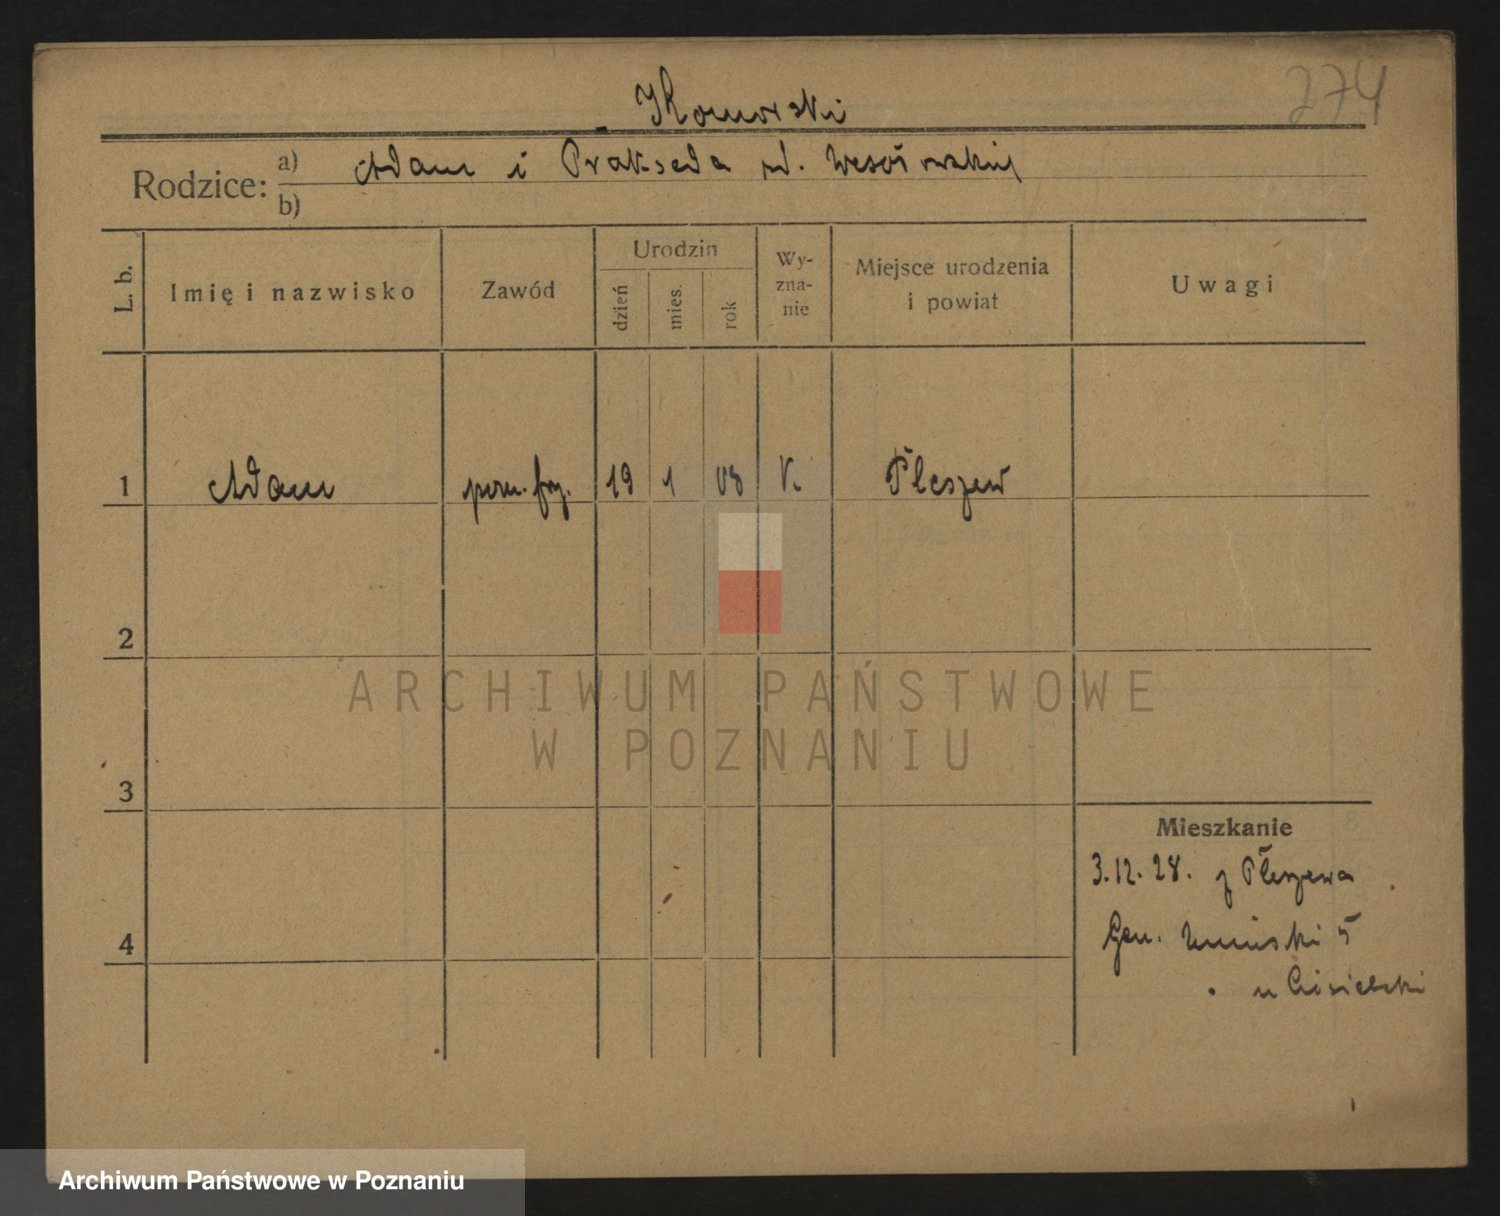 274
Komorski
Rodzice:
a) Adam i Prakseda
b)
L. b.
Imię i nazwisko
Zawód
Urodzin
dzień
mies.
rok
Wy-
zna-
nie
Miejsce urodzenia
i powiat
Uwagi
1 Adam pom. fryz. 19 1 08 k. Pleszew
2
3
4
Mieszkanie
3.12.28. z Pleszewa
Gen. 5
u
ARCHIWUM PAŃSTWOWE
W POZNANIU
Archiwum Państwowe w Poznaniu